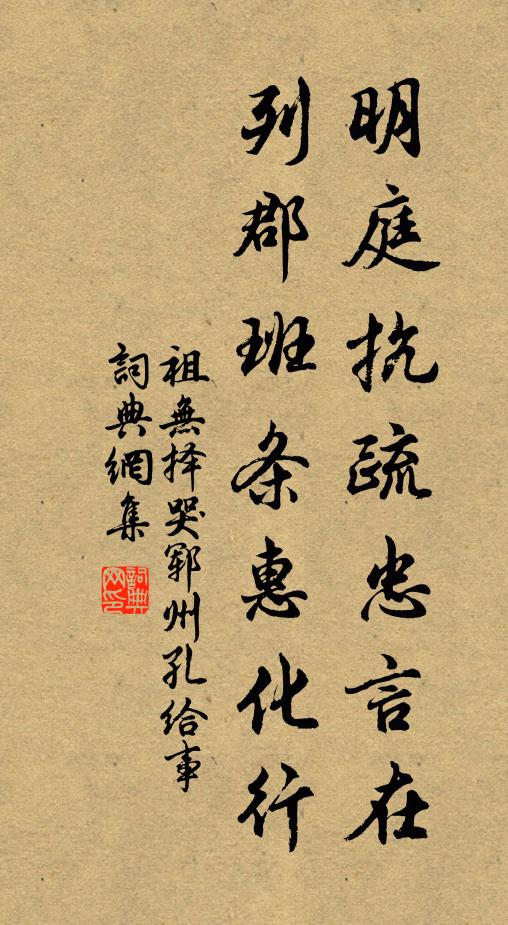 明庭抗疏忠言在
列郡班条惠化行
祖無择哭郓州孔给事
詞典網集
詞典
网印